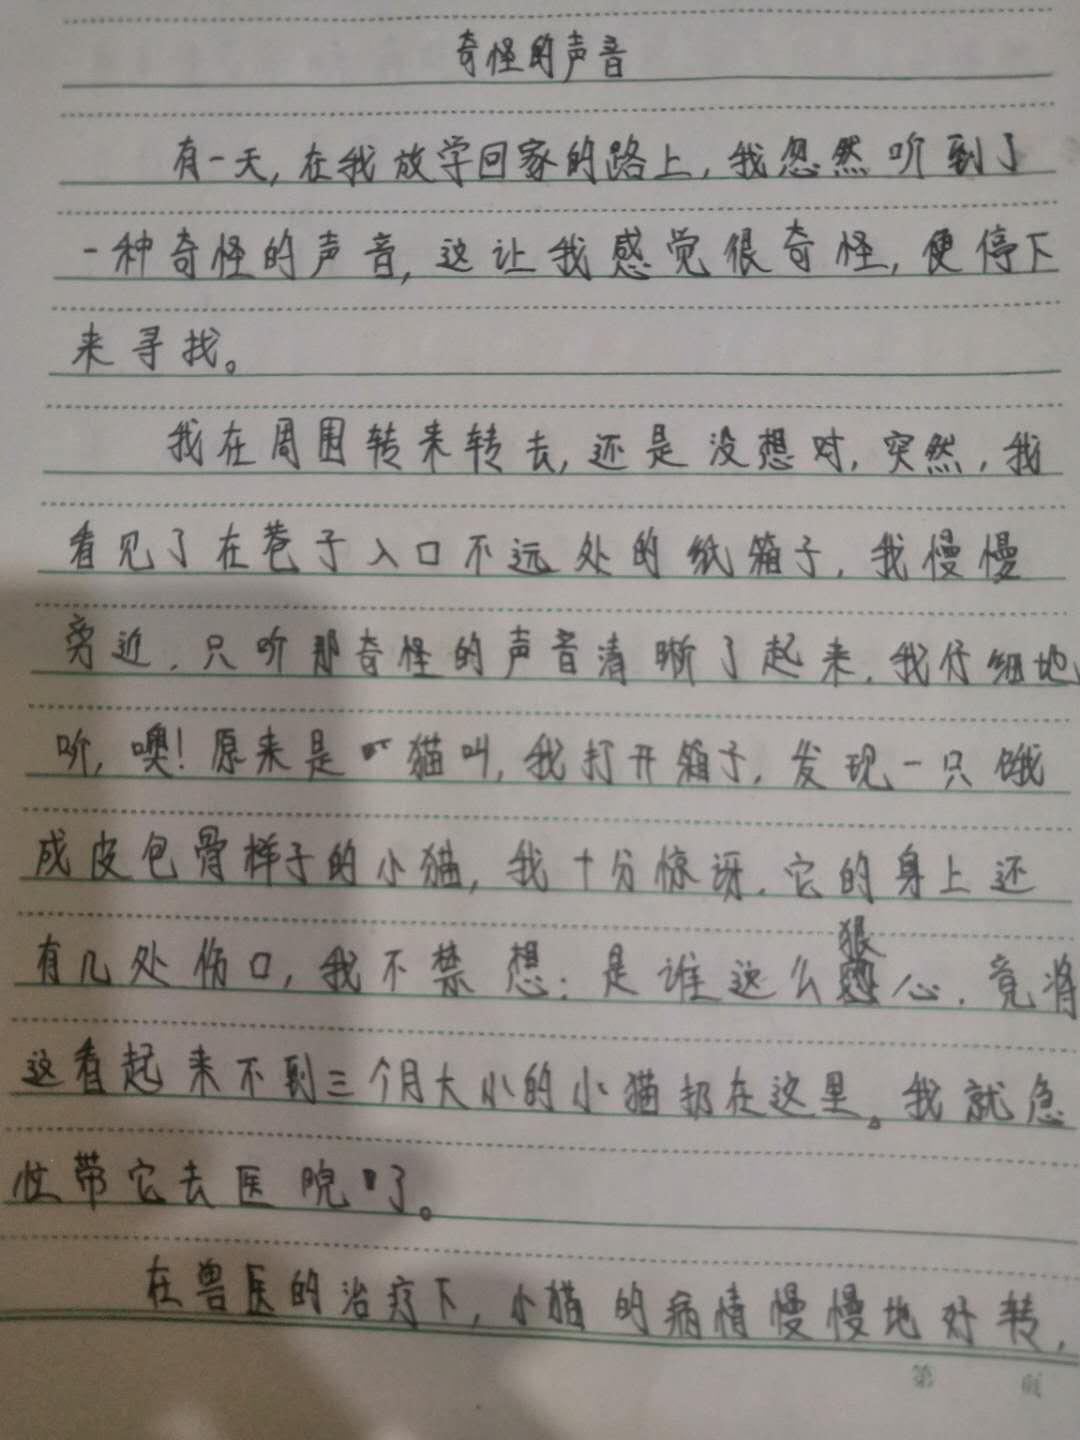 奇怪的声音
有一天,在我放学回家的路上,我忽然听到了
一种奇怪的声音,这让我感觉很奇怪,便停下
来寻找。
我在周围转来转去,还是没想对,突然,我
看见了在巷子入口不远处的纸箱子,我慢慢
旁近,只听那奇怪的声音清晰了起来,我仔细地
听,噢!原来是猫叫,我打开箱子,发现一只饿
成皮包骨样子的小猫,我十分惊讶,它的身上还
有几处伤口,我不禁想:是谁这么狠心,竟将
这看起来不到三个月大小的小猫扔在这里。我就急
忙带它去医院了。
在兽医的治疗下,小猫的病情慢慢地好转,
第 页